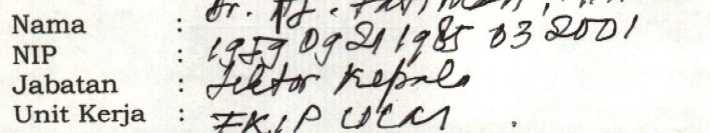 Nama : Dr. Hj.
NIP : 19590921 1985 03 2001
Jabatan : Lektor Kepala
Unit Kerja : FKIP